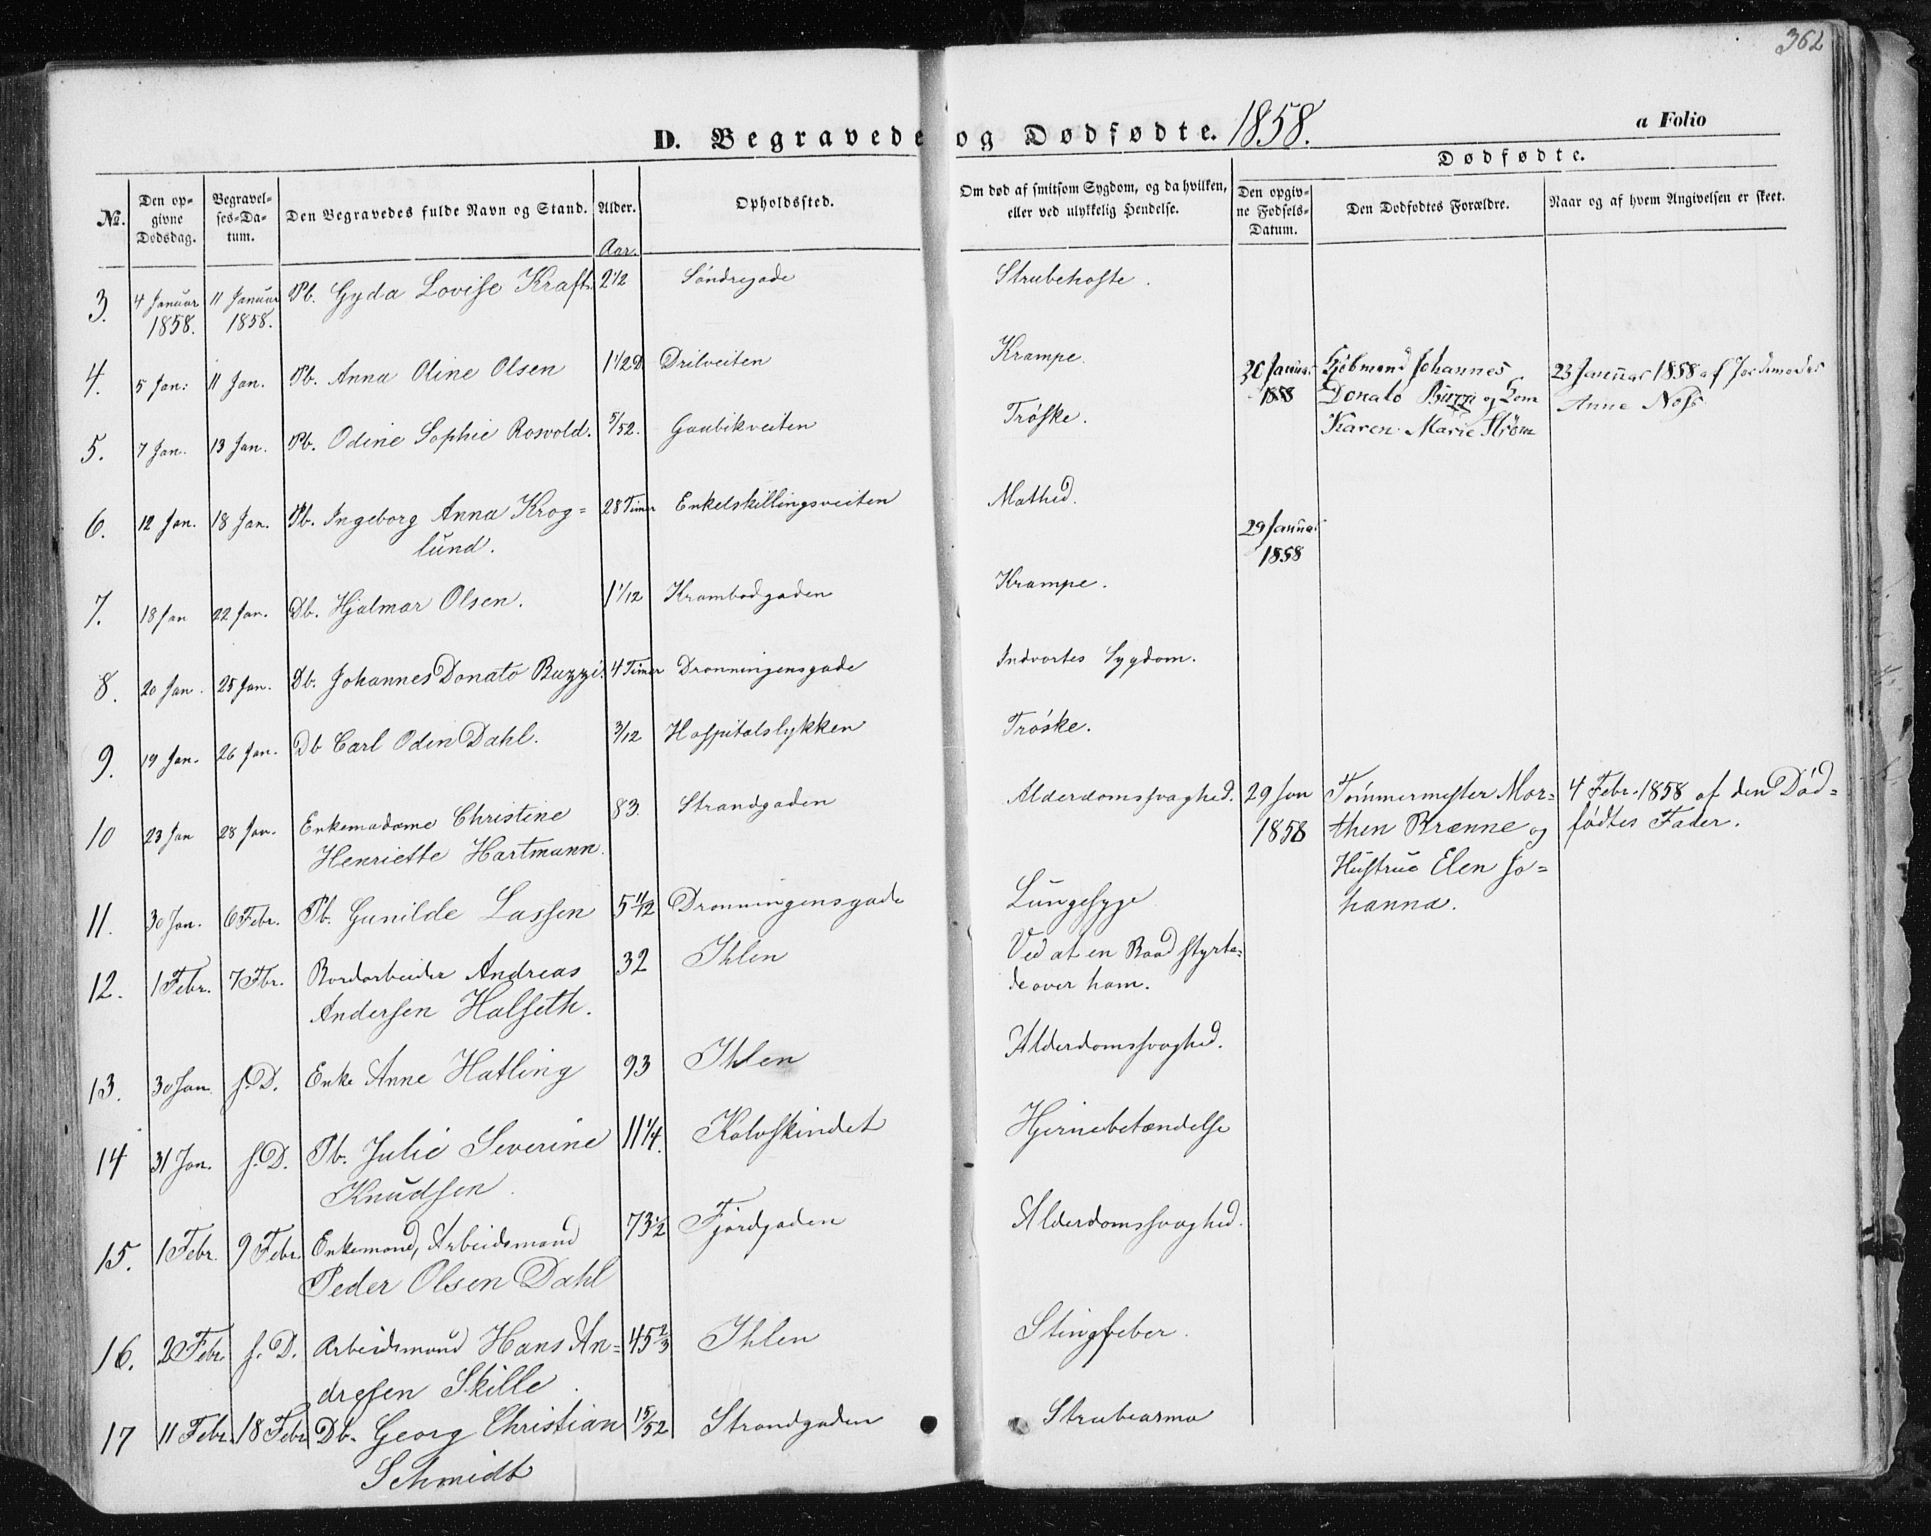 362
D. Begravede og Dødfødte. 1858.
a Folio
Dødfødte.
No. Den opgivne Dødsdag. Begravelses-Datum. Den Begravedes fulde Navn og Stand. Alder. Opholdssted. Om død af smitsom Sygdom, og da hvilken, eller ved ulykkelig Hendelse. Den opgivne Fødsels-Datum. Den Dødfødtes Forældre. Naar og af hvem Angivelsen er skeet.
Aar.
3. 4 Januar 1858. 11 Januar 1858. Pb. Gyda Lovise Kraft. 2 1/2 Söndregade Strubehoste.
4. 5 Jan: 11 Jan. Pb. Anna Oline Olsen 1 1/2 D Drilveiten Krampe.
30 Januar 1858 Kjöbmand Johannes Donato Buzzi og Karen Marie Strøm 23 Januar 1858 af Jordemoder Anne
5. 7 Jan. 13 Jan. Pb. Odine Sophie Rosvold. 5/52. Gaubikveiten Tröske.
6. 12 Jan. 18 Jan. Pb. Ingeborg Anna Krog=
lund. 28 Timer Enkelskillingsveiten Mathed.
29 Januar 1858
7. 18 Jan 22 Jan. Db. Hjalmar Olsen. 1 1/12 Krambodgaden Krampe.
8. 20 Jan. 25 Jan. Db. Johannes Donato Buzzi. 4 Timer Dronningensgade Indvortes Sygdom.
9. 19 Jan. 26 Jan. Db Carl Odin Dahl. 3/12 Hospitalslykken Tröske.
10 23 Jan 28 Jan. Enkemadame Christine
Henriette Hartmann. 83. Strandgaden Alderdomssvaghed.
29 Jan 1858 Tömmermester Mor=
then Brænne og
Hustrue Elen Jo=
hanna.
4 Febr. 1858 af den Död=
födtes Fader.
11. 30 Jan. 6 Febr. Pb. Gunilde Lassen 5 1/2 Dronningensgade Lungesyge
12. 1 Febr. 7 Fbr. Bordarbeider Andreas
Andersen Halseth. 32 Ihlen Ved at en Baad styrte=
de over ham.
13. 30 Jan. s. D. Enke Anne Hatling 93 Ihlen Alderdomssvaghed.
14 31 Jan. s. D. Pb. Julie Severine
Knudsen. 11 1/4. Kalvskindet Hjernebetændelse
15. 1 Febr. 9 Febr. Enkemand, Arbeidsmand
Peder Olsen Dahl 73 1/2 Fjordgaden Alderdomssvaghed.
16. 2 Febr. s. D. Arbeidsmand Hans An=
dresen Skille. 45 2/3 Ihlen Stingfeber.
17 11 Febr. 18 Febr. Db. Georg Christian
Schmidt 15/52 Strandgaden Strubearma